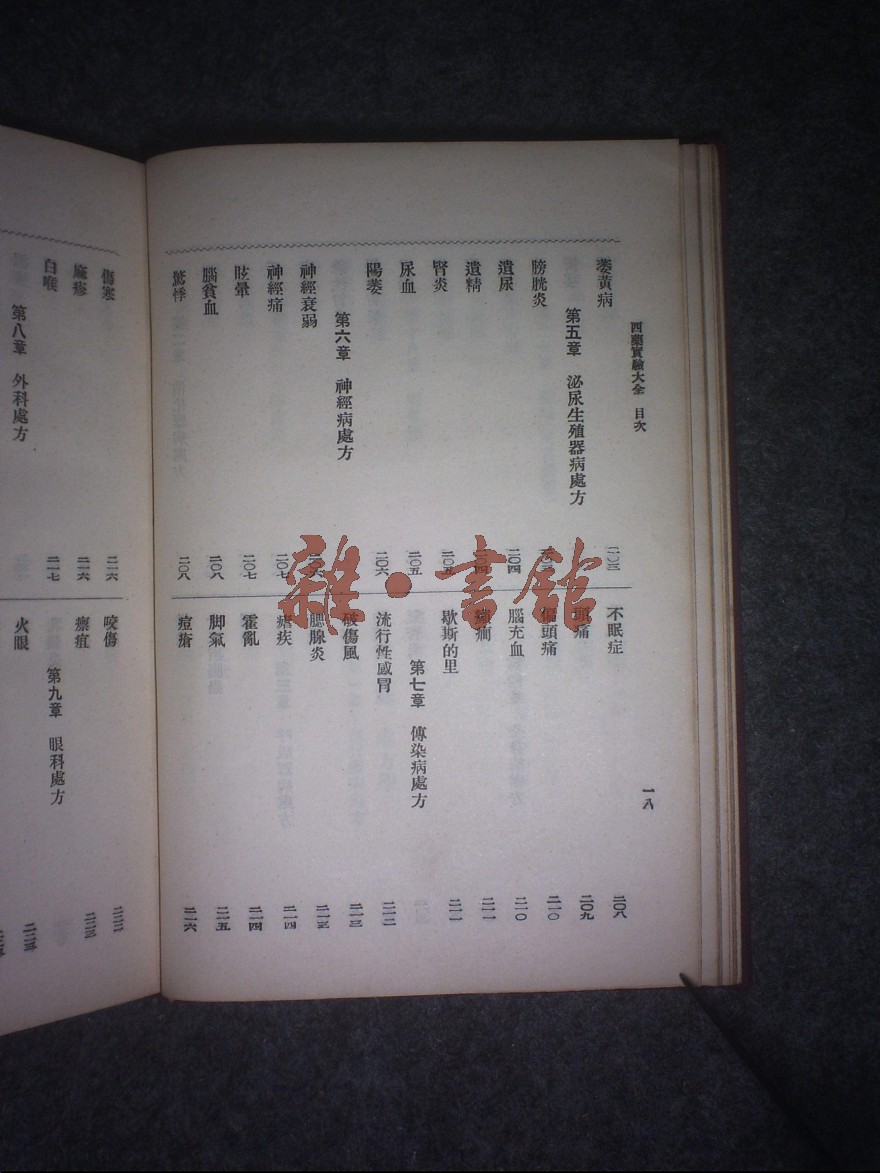 西藥實驗大全 目次
一八
萎黃病 二〇三
第五章 泌尿生殖器病處方
膀胱炎
遺尿 二〇四
遺精 二〇四
腎炎 二〇五
尿血 二〇五
陽萎 二〇六
第六章 神經病處方
神經衰弱 二〇六
神經痛 二〇七
眩暈 二〇七
腦貧血 二〇八
驚悸 二〇八
不眠症 二〇八
頭痛 二〇九
偏頭痛 二一〇
腦充血 二一〇
癲癇 二一一
歇斯的里 二一一
第七章 傳染病處方
流行性感冒 二一二
破傷風 二一三
腮腺炎 二一三
瘧疾 二一四
霍亂 二一四
脚氣 二一五
痘瘡 二一六
傷寒 二一六
痲疹 二一六
白喉 二一七
第八章 外科處方
咬傷 二二二
瘭疽 二二三
第九章 眼科處方
火眼 二二三
雜·書館